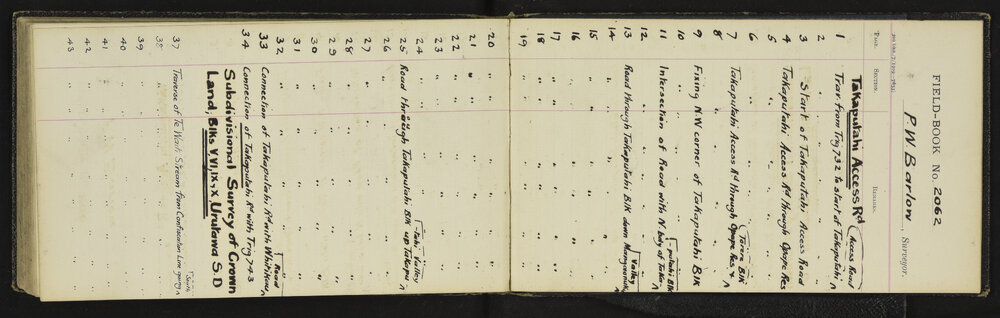 FIELD-BOOK No. 2062
P. W. Barlow, Surveyor.
PAGE. SECTION. REMARKS.
Takaputahi Access Rd
(Access Road
1 Trav. from Trig 732 to start of Takaputahi ^
2 " " " " " "
3 Start of Takaputahi Access Road
4 Takaputahi Access Rd through Opape Res
5 " " " " "
6 " " " " "
(Tawa Blk
7 Takaputahi Access Rd through Opape Res & ^
8 " " " " " "
9 Fixing N.W corner of Takaputahi Blk
10 " " " " "
-putahi Blk
11 Intersection of Road with N. bdy of Taka- ^
12 " " " " " "
Valley
13 Road through Takaputahi Blk down ^
14 " " " " "
15 " " " " "
16 " " " " "
17 " " " " "
18 " " " " "
19 " " " " "
20 " " " " "
21 " " " " "
22 " " " " "
23 " " " " "
24 " " " " "
-tahi Valley
25 Road through Takaputahi Blk up Takapu ^
26 " " " " "
27 " " " " "
28 " " " " "
29 " " " " "
30 " " " " "
31 " " " " "
32 " " " " "
Road
33 Connection of Takaputahi Rd with ^
34 Connection of Takaputahi Rd with Trig 743
Subdivisional Survey of Crown
Land, Blks V, VI, IX, & X, Urutawa S.D
South
37 Traverse of Te Waiti Stream from Confiscation Line going ^
38 " " " " "
39 " " " " "
40 " " " " "
41 " " " " "
42 " " " " "
43 " " " " "